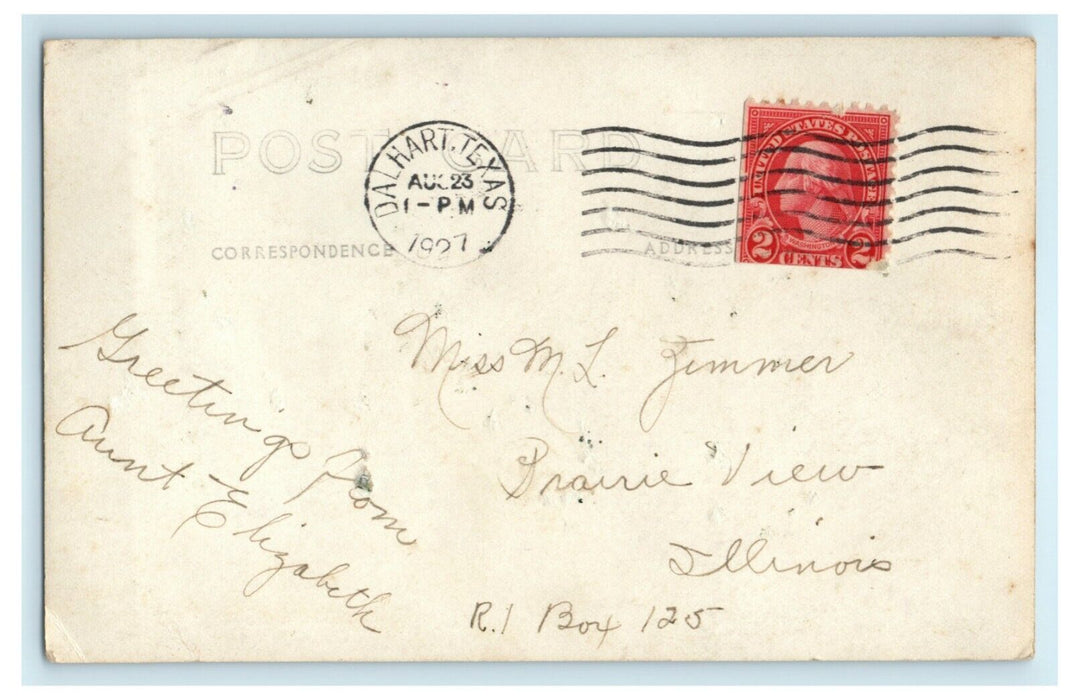 POST CARD
DALHART, TEXAS
AUG 23
1 - PM
1927
UNITED STATES POSTAGE
WASHINGTON
2 CENTS 2
CORRESPONDENCE
ADDRESS
Greetings from
Aunt Elizabeth
Miss M. L. Zimmer
Prairie View
Illinois
R.1 Box 125